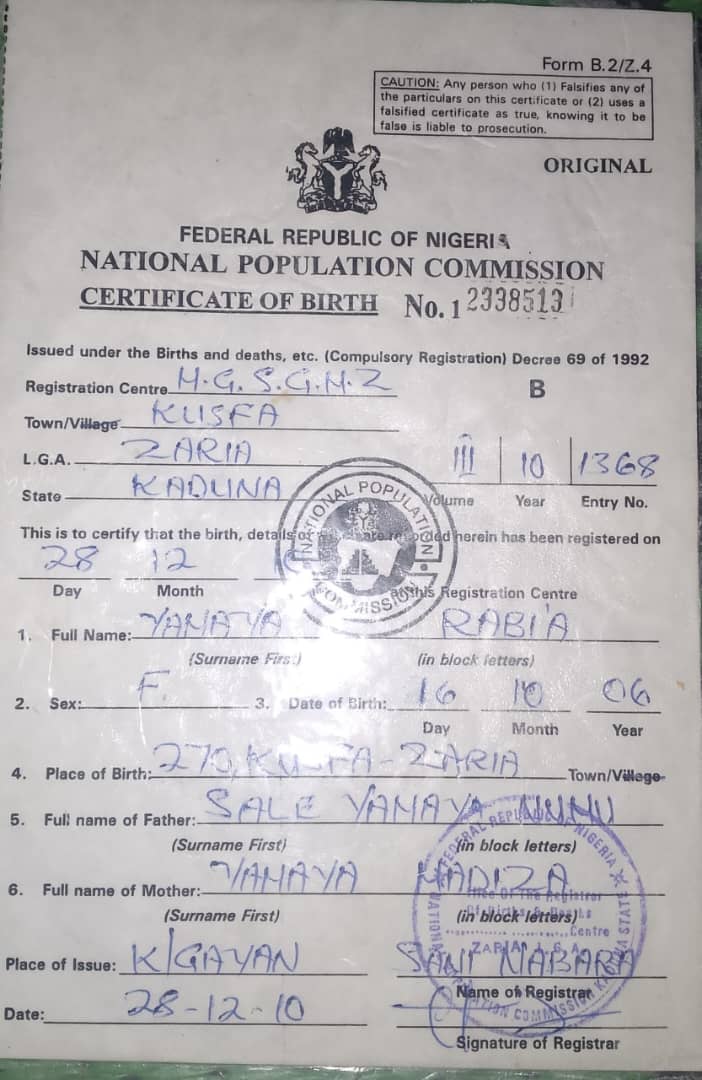 Form B.2/Z.4
CAUTION: Any person who (1) Falsifies any of
the particulars on this certificate or (2) uses a
falsified certificate as true, knowing it to be
false is liable to prosecution.
ORIGINAL
FEDERAL REPUBLIC OF NIGERIA
NATIONAL POPULATION COMMISSION
CERTIFICATE OF BIRTH No. 1 2338513
Issued under the Births and deaths, etc. (Compulsory Registration) Decree 69 of 1992
Registration Centre H.G.S.G.H.Z B
Town/Village KUSFA
L.G.A. ZARIA III 10 1368
State KADUNA Volume Year Entry No.
NATIONAL POPULATION COMMISSION
This is to certify that the birth, details of herein has been registered on
28 12
Day Month this Registration Centre
1. Full Name: YAHAYA RABI'A
(Surname First) (in block letters)
2. Sex: F. 3. Date of Birth: 16 10 06
Day Month Year
4. Place of Birth: 270, KUSFA - ZARIA Town/Village
5. Full name of Father: SALE YAHAYA NUHU
(Surname First) (in block letters)
6. Full name of Mother: YAHAYA HADIZA
(Surname First) (in block letters)
FEDERAL REPUBLIC OF NIGERIA
Office Of The Registrar
Of Births & Deaths
Centre
ZARIA L.G.A
NATIONAL POPULATION COMMISSION KADUNA STATE
Place of Issue: K/GAYAN SANI NABARA
Name of Registrar
Date: 28-12-10
Signature of Registrar